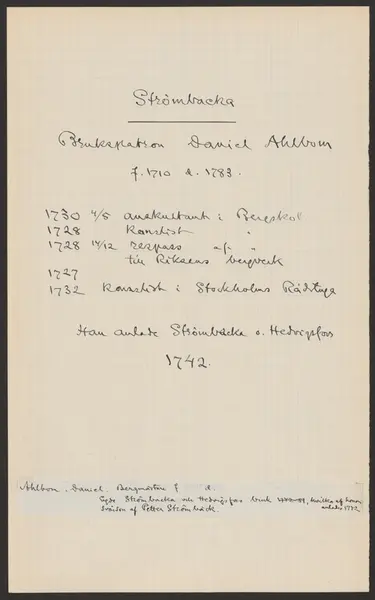 Strömbacka
Brukspatron Daniel Ahlbom
f. 1710 d. 1783.
1730 4/5 auskultant i Bergskoll
1728 Kanslist "
1728 14/12 respass af "
till Riksens bergverk
1727
1732 Kanslist i Stockholms Rådstuga
Han anlade Strömbacka o. Hedvigsfors
1742.
Ahlbom, Daniel. Bergmästare f d.
Egde Strömbacka och Hedvigsfors bruk hvilka af honom
anlades 1742
af Petter Strömbäck.